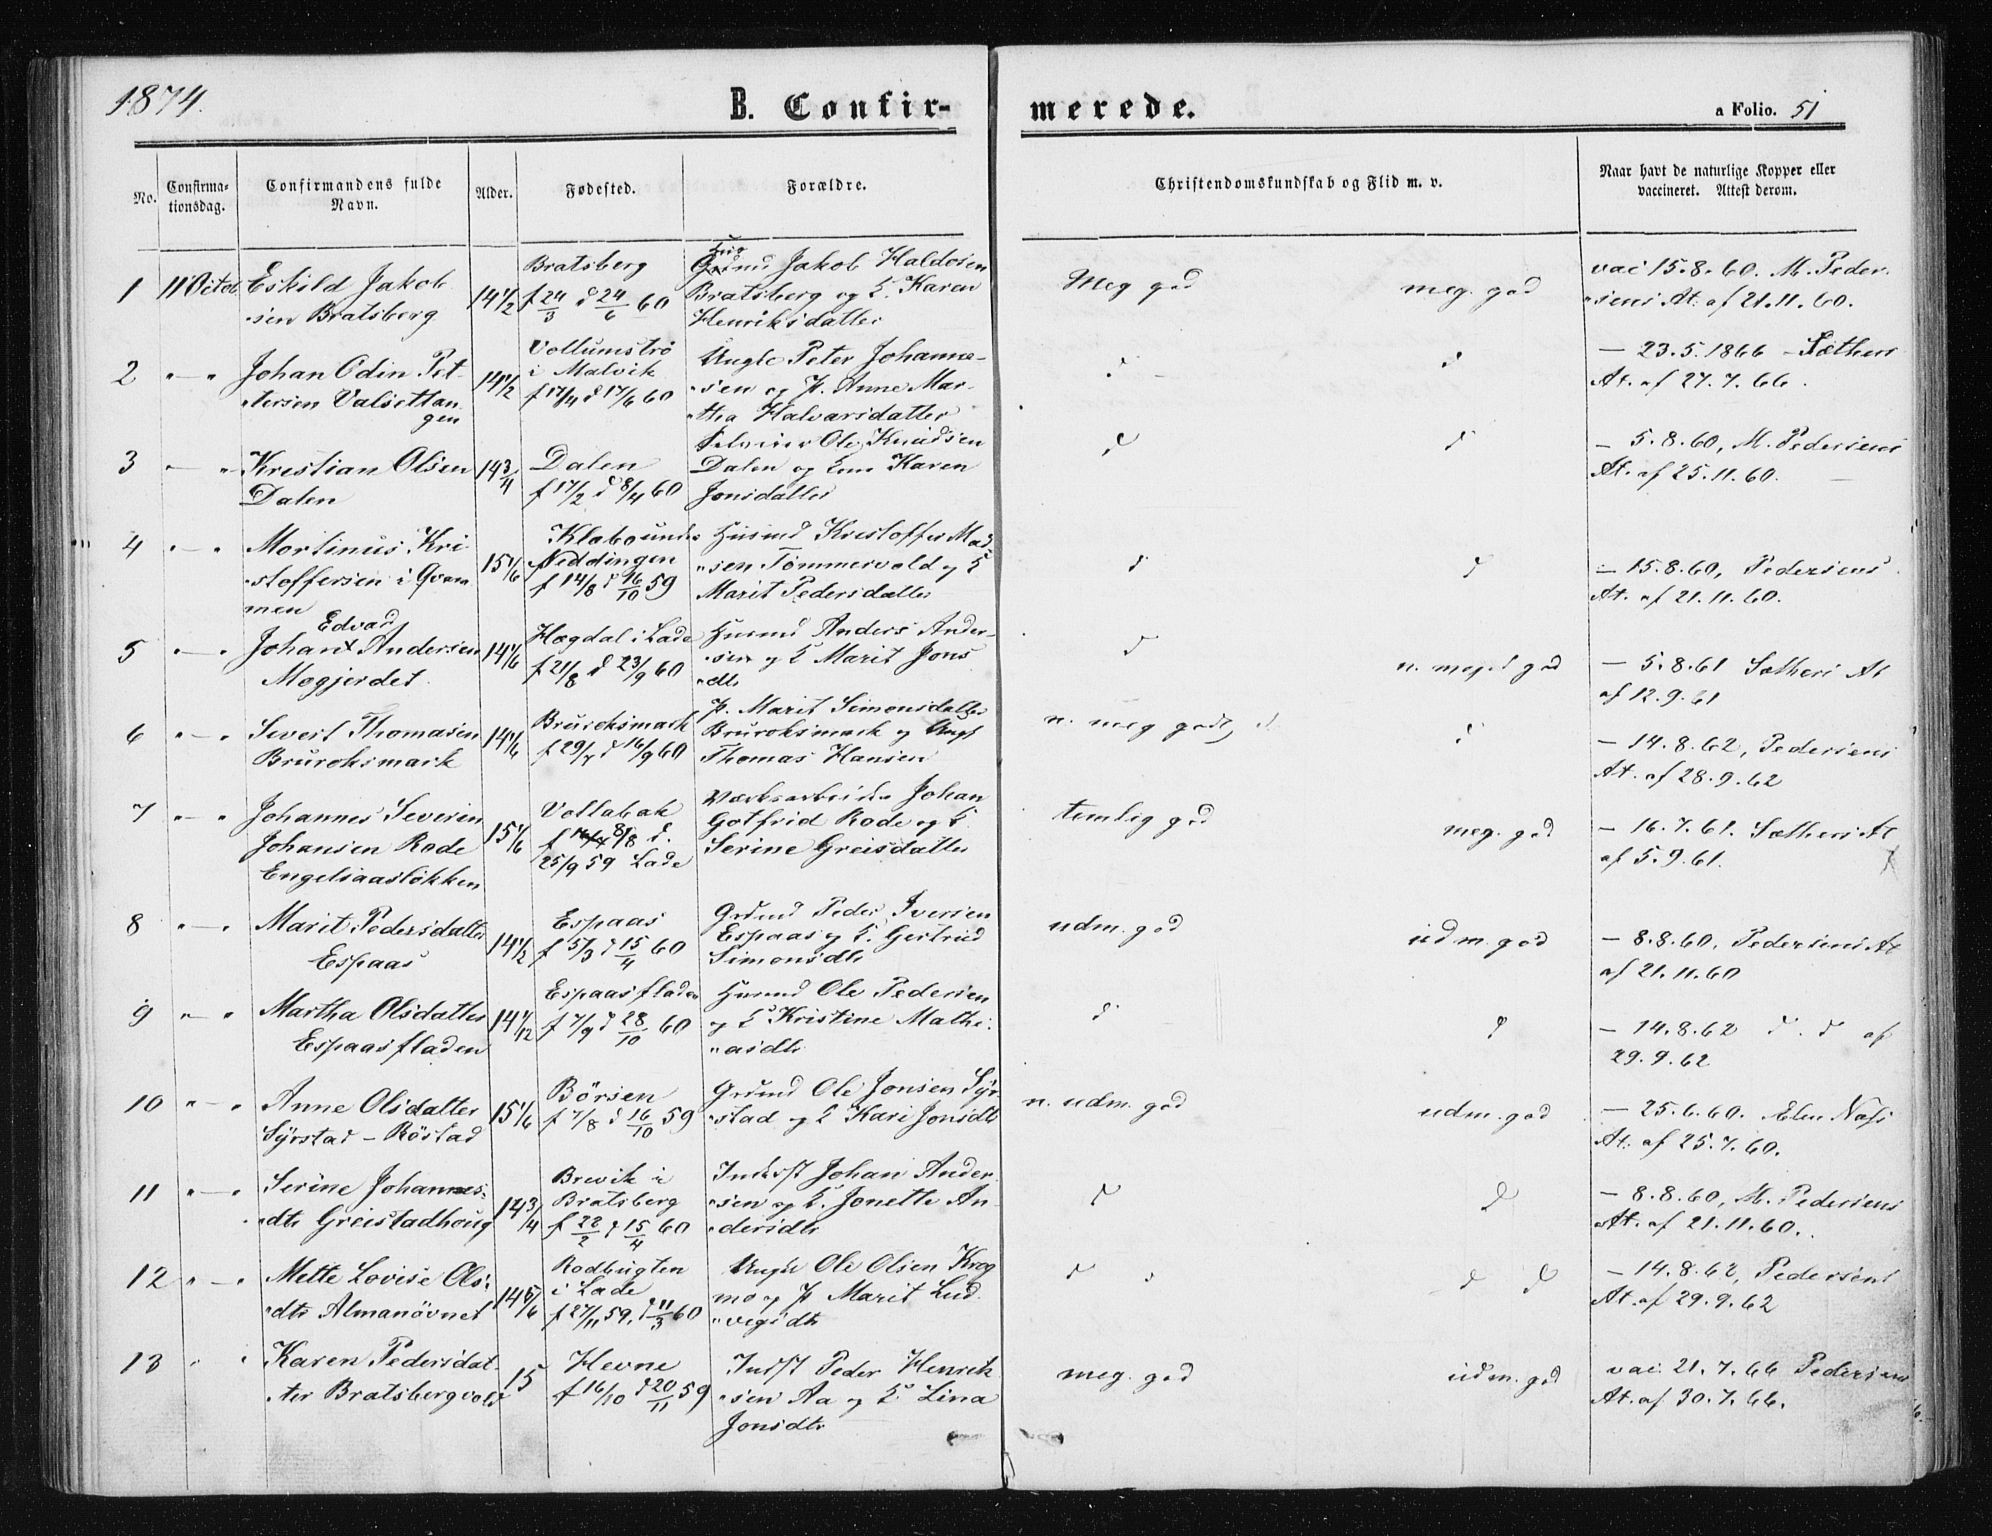 1874.
B. Confir-
merede.
a Folio. 51
No.
Confirma-
tionsdag.
Confirmandens fulde
Navn.
Alder.
Fødested.
Forældre.
Christendomskundskab og Flid m. v.
Naar havt de naturlige Kopper eller
vaccineret. Attest derom.
1
11 Octob
Eskild Jakob-
sen Bratsberg
14 1/2
Bratsberg
f 24/3 d 24/6 60
Jakob Haldosen
Bratsberg og E. Karen
Henriksdatter
Meg god
meg. god
vac 15.8.60. M. Peder-
sens At. af 21.11.60.
2
" — "
Johan Odin Pet-
tersen Valsettan
gen
14 1/2
Vollumstrø
i Malvik
f 17/4 d 17/6 60
Ungk Peter Johanne-
sen og P. Anne Mar-
tha Halvarsdatter
d
d
— 23.5.1866 — Sæthers
At. af 27.7.66.
3
— "
Krestian Olsen
Dalen
14 3/4
Dalen
f 17/2 d 8/4 60
Selveier Ole Knudsen
Dalen og Karen
Jonsdatter
d
d
— 5.8.60, M. Pedersens
At. af 25.11.60.
4
" — "
Mortinus Kri
stoffersen i Qvam
men
15 1/6
Klabo under
Neddingen
f 14/8 d 16/10 59
Husmd Kristoffer Mad-
sen Tømmervold og E
Marit Pedersdatter
d
d
— 15.8.60, Pedersens
At. af 21.11.60.
5
" — "
Edvard
Johan x Andersen
Mogjerdet
14 1/6
Hægdal i Lade
f 21/8 d 23/9 60
Husmd Anders Ander-
sen og E Marit Jons
dtr
d
n. meget god
— 5.8.61 Sæthers At
af 12.9.61
6
" — "
Sivert Thomasen
Bruroksmark
14 1/6
Bruroksmark
f 29/7 d 16/9 60
P. Marit Simonsdatter
Bruroksmark og Ungk
Thomas Hansen
n. meg godt, d.
d
— 14.8.62, Pedersens
At. af 28.9.62
7
" — "
Johannes Severin
Johansen Rode
Engelsaasløkken
15 1/6
Vollabak
8/8 d.
25/9 59 Lade
Værksarbeider Johan
Gotfrid Rode og E.
Serine Greisdatter
temlig god
meg. god
— 16.7.61. Sæthers At
af 5.9.61.
8
" — "
Marit Pedersdatter
Espaas
14 1/2
Espaas
f 5/3 d 15/4 60
Grdmd Peder Iversen
Espaas og E. Gertrud
Simonsdtr
udm. god
udm. god
— 8.8.60, Pedersens At
af 21.11.60
9
" — "
Martha Olsdatter
Espaasfladen
14 1/12
Espaasfladen
f 7/9 d 28/10 60
Husmd Ole Pedersen
og E Kristine Mathi-
asdtr
d
d
— 14.8.62 d. d af
29.9.62
10
" — "
Anne Olsdatter
Syrstad — Røstad
15 1/6
Børsen
f 7/8 d 16/10 59
Grdmd Ole Jonsen Syr-
stad og E Kari Jonsdtr
n. udm. god
udm. god
— 25.6.60. Elen Næss
At. af 25.7.60.
11
" — "
Serine Johannes-
dtr Greistadhoug
14 3/4
Brevik i
Bratsberg
f 22/2 d 15/4 60
Inderst Johan Ander-
sen og E. Jonette An-
dersdtr
d
d
— 8.8.60, M. Pedersens
At. af 21.11.60.
12
" — "
Mette Lovise Ols-
dtr Almanøvnet
14 5/6
Rodbugten
i Lade
f 27/11 59. d 11/3 60
Ungk Ole Olsen Krog
mo og P Marit Lud-
vegsdtr
d
d d
— 14.8.62, Pedersens
At. af 29.9.62
13
" "
Karen Pedersdat-
ter Bratsbergvold
15
Hevne
f 16/10 d 20/11 59
Indst Peder Henrik
sen Aa og E. Lina
Jonsdtr
meg. god
udm. god
vac. 21.7.66 Pedersens
At. af 30.7.66.